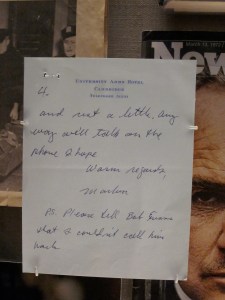 UNIVERSITY ARMS HOTEL
CAMBRIDGE
4.
and not a little. Any
way we'll talk on the
phone I hope
Warm regards,
Marlon
P.S. Please tell Bob Evans
that I couldn't call him
back
New